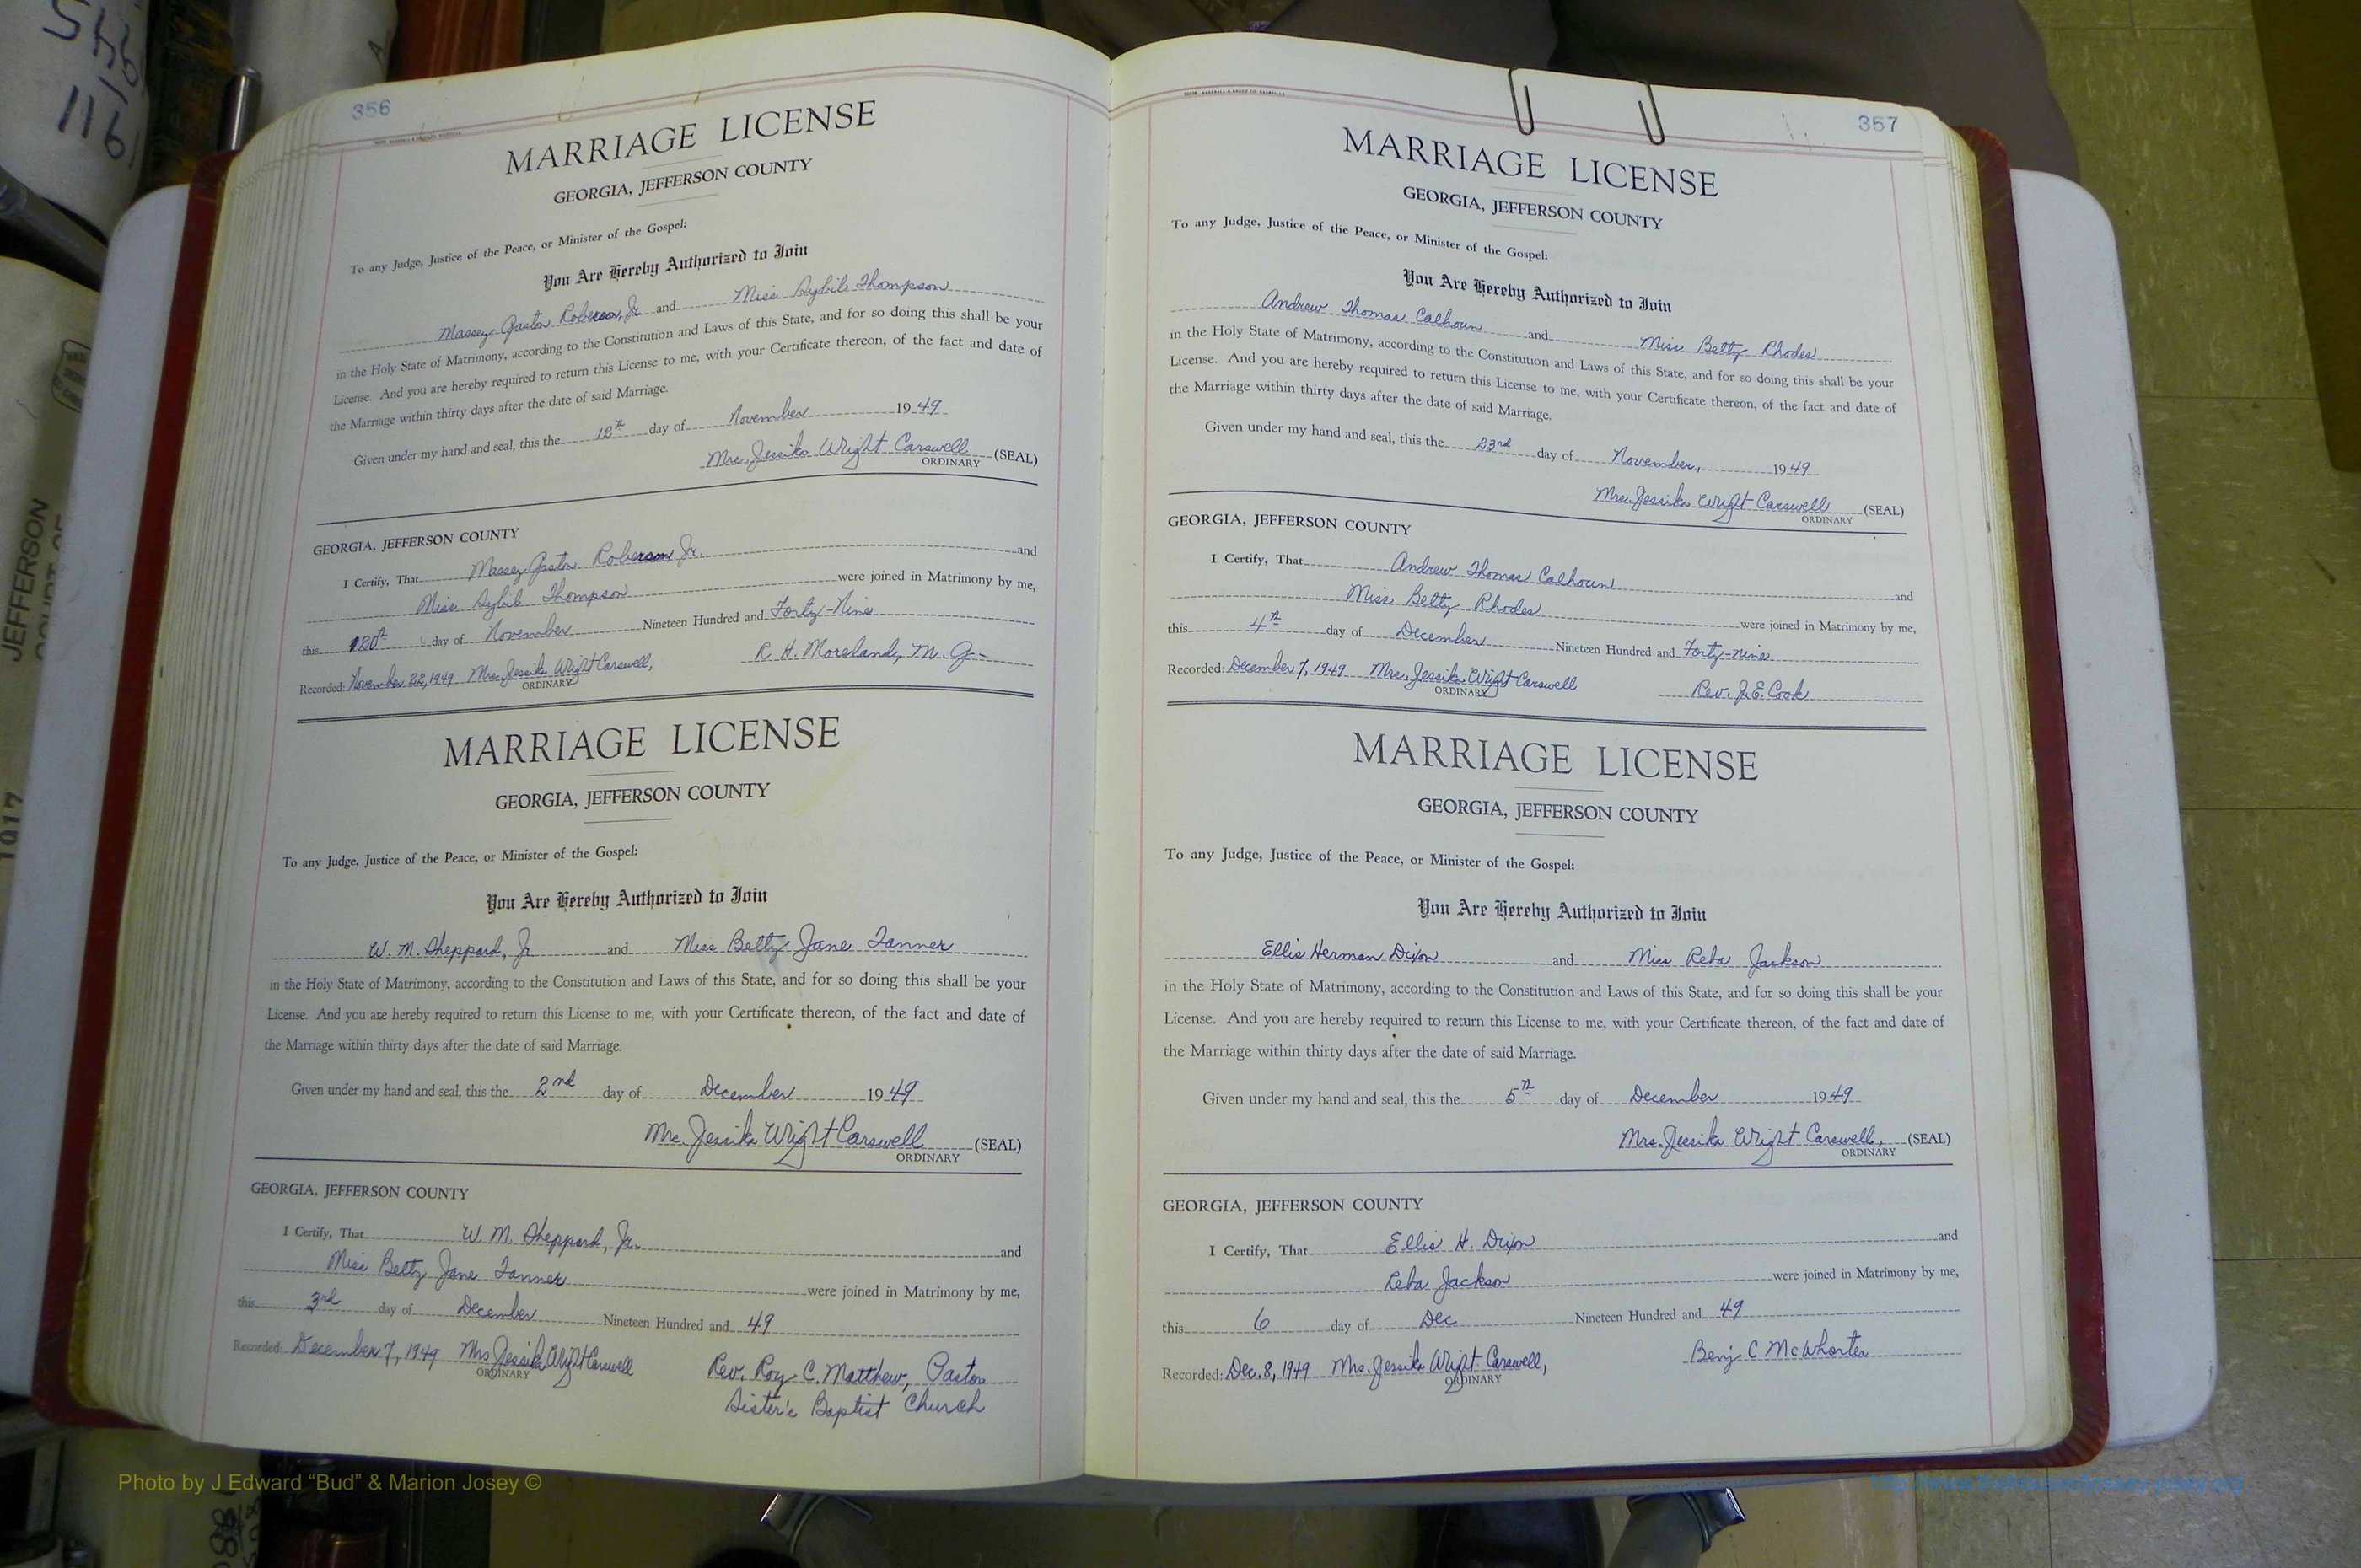 356
MARRIAGE LICENSE
GEORGIA, JEFFERSON COUNTY
To any Judge, Justice of the Peace, or Minister of the Gospel:
You Are Hereby Authorized to Join
Massey Gaston Roberson, Jr. and Miss Sybil Thompson
in the Holy State of Matrimony, according to the Constitution and Laws of this State, and for so doing this shall be your
License. And you are hereby required to return this License to me, with your Certificate thereon, of the fact and date of
the Marriage within thirty days after the date of said Marriage.
Given under my hand and seal, this the 12th day of November 1949
Mrs. Jessika Wright Carswell (SEAL)
ORDINARY
GEORGIA, JEFFERSON COUNTY
I Certify, That Massey Gaston Roberson Jr. and
Miss Sybil Thompson were joined in Matrimony by me,
this day of November Nineteen Hundred and Forty-Nine
Recorded: November 22, 1949 Mrs. Jessika Wright Carswell, R. H. Moreland, M. G.
ORDINARY
MARRIAGE LICENSE
GEORGIA, JEFFERSON COUNTY
To any Judge, Justice of the Peace, or Minister of the Gospel:
You Are Hereby Authorized to Join
W. M. Sheppard, Jr and Miss Betty Jane Tanner
in the Holy State of Matrimony, according to the Constitution and Laws of this State, and for so doing this shall be your
License. And you are hereby required to return this License to me, with your Certificate thereon, of the fact and date of
the Marriage within thirty days after the date of said Marriage.
Given under my hand and seal, this the 2nd day of December 1949
Mrs. Jessika Wright Carswell (SEAL)
ORDINARY
GEORGIA, JEFFERSON COUNTY
I Certify, That W. M. Sheppard, Jr. and
Miss Betty Jane Tanner were joined in Matrimony by me,
this 3rd day of December Nineteen Hundred and 49
Recorded: December 7, 1949 Mrs Jessika Wright Carswell Rev. Roy C. Matthew, Pastor
ORDINARY
Sister's Baptist Church
357
MARRIAGE LICENSE
GEORGIA, JEFFERSON COUNTY
To any Judge, Justice of the Peace, or Minister of the Gospel:
You Are Hereby Authorized to Join
Andrew Thomas Calhoun and Miss Betty Rhodes
in the Holy State of Matrimony, according to the Constitution and Laws of this State, and for so doing this shall be your
License. And you are hereby required to return this License to me, with your Certificate thereon, of the fact and date of
the Marriage within thirty days after the date of said Marriage.
Given under my hand and seal, this the 23rd day of November, 1949
Mrs. Jessika Wright Carswell (SEAL)
ORDINARY
GEORGIA, JEFFERSON COUNTY
I Certify, That Andrew Thomas Calhoun and
Miss Betty Rhodes were joined in Matrimony by me,
this 4th day of December Nineteen Hundred and Forty-nine
Recorded: December 7, 1949 Mrs. Jessika Wright Carswell Rev. J. E. Cook
ORDINARY
MARRIAGE LICENSE
GEORGIA, JEFFERSON COUNTY
To any Judge, Justice of the Peace, or Minister of the Gospel:
You Are Hereby Authorized to Join
Ellis Herman Dixon and Miss Reba Jackson
in the Holy State of Matrimony, according to the Constitution and Laws of this State, and for so doing this shall be your
License. And you are hereby required to return this License to me, with your Certificate thereon, of the fact and date of
the Marriage within thirty days after the date of said Marriage.
Given under my hand and seal, this the 5th day of December 1949
Mrs. Jessika Wright Carswell, (SEAL)
ORDINARY
GEORGIA, JEFFERSON COUNTY
I Certify, That Ellis H. Dixon and
Reba Jackson were joined in Matrimony by me,
this 6 day of Dec Nineteen Hundred and 49
Recorded: Dec. 8, 1949 Mrs. Jessika Wright Carswell, Benj C McWhorter
ORDINARY
JEFFERSON
1917
Photo by J Edward “Bud” & Marion Josey ©